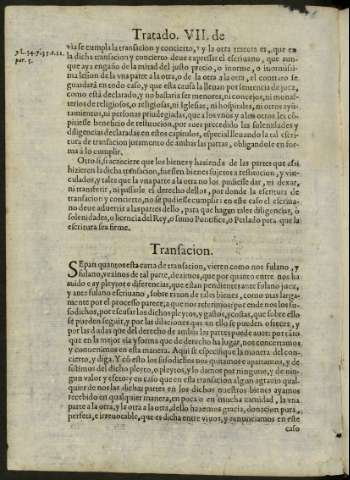 Tratado. VII. de
via se cumpla la transacion y concierto, y la otra tercera es, que en
la dicha transacion y concierto deue expressar el escriuano, que aun-
que aya engaño de la mitad del justo precio, o inorme, o inormissi-
ma lesion de la vna parte a la otra, o de la otra a la otra, el contrato se
guardará en todo caso, y que esta causa la lleuan por sentencia de juez,
como está declarado, y no bastaria ser menores, ni concejos, ni monas-
terios de religiosos, o religiosas, ni Iglesias, ni hospitales, ni otros ayũ-
tamientos, ni personas priuilegiadas, que a los vnos y a los otros les cõ-
piesse beneficio de restitucion, por auer precedido las solenidades y
diligencias declaradas en estos capitulos, especial lleuando la tal escri-
tura de transacion juramento de ambas las partes, obligandole en for-
ma a lo cumplir.
Otrosi, si aconteciere que los bienes y hazienda de las partes que assi
hizieren la dicha transacion, fuessen bienes sujetos a restitucion, y vin-
culados, y tales que la vna parte a la otra no los pudiesse dar, ni dexar,
ni transferir, ni passarle el derecho dellos, por donde la escritura de
transacion y concierto, no se pudiesse cumplir: en este caso el escriua-
no deue aduertir a las partes dello, para que hagan tales diligencias, ò
solenidades, o licencia del Rey, o Sumo Pontifice, o Perlado para que la
escritura sea firme.
Transacion.
SEpan quantos esta carta de transacion, vieren como nos fulano, y
fulano, vezinos de tal parte, dezimos, que por quanto entre nos ha
auido e ay pleytos e diferencias, que estan pendientes ante fulano juez,
y ante fulano escriuano, sobre razon de tales bienes, como mas larga-
mente por el processo parece, a que nos referimos: por ende nos los su-
sodichos, por escusar los dichos pleytos, y gastos, y costas, que sobre ello
se pueden seguir, y por las dilaciones que en ello se pueden ofrecer, y
por las dudas que del derecho de ambas las partes puede auer: para lo
que en la mejor via y forma que de derecho ha lugar, nos concertamos,
y conuenimos en esta manera. Aqui se especifique la manera del con-
cierto, y diga. Y cõ esto los susodichos nos quitamos e apartamos, y de-
sistimos del dicho pleyto, o pleytos, y lo damos por ninguno, y de nin-
gun valor y efeto: y en caso que en esta transacion algun agrauio qual-
quier de nos las dichas partes en los dichos nuestros bienes ayamos
recebido en qualquier manera, en poca o en mucha cantidad, la vna
parte a la otra, y la otra a la otra, dello hazemos gracia, donacion pura,
perfeta, e irreuocable, que es dicha entre viuos, y renunciamos en este
caso